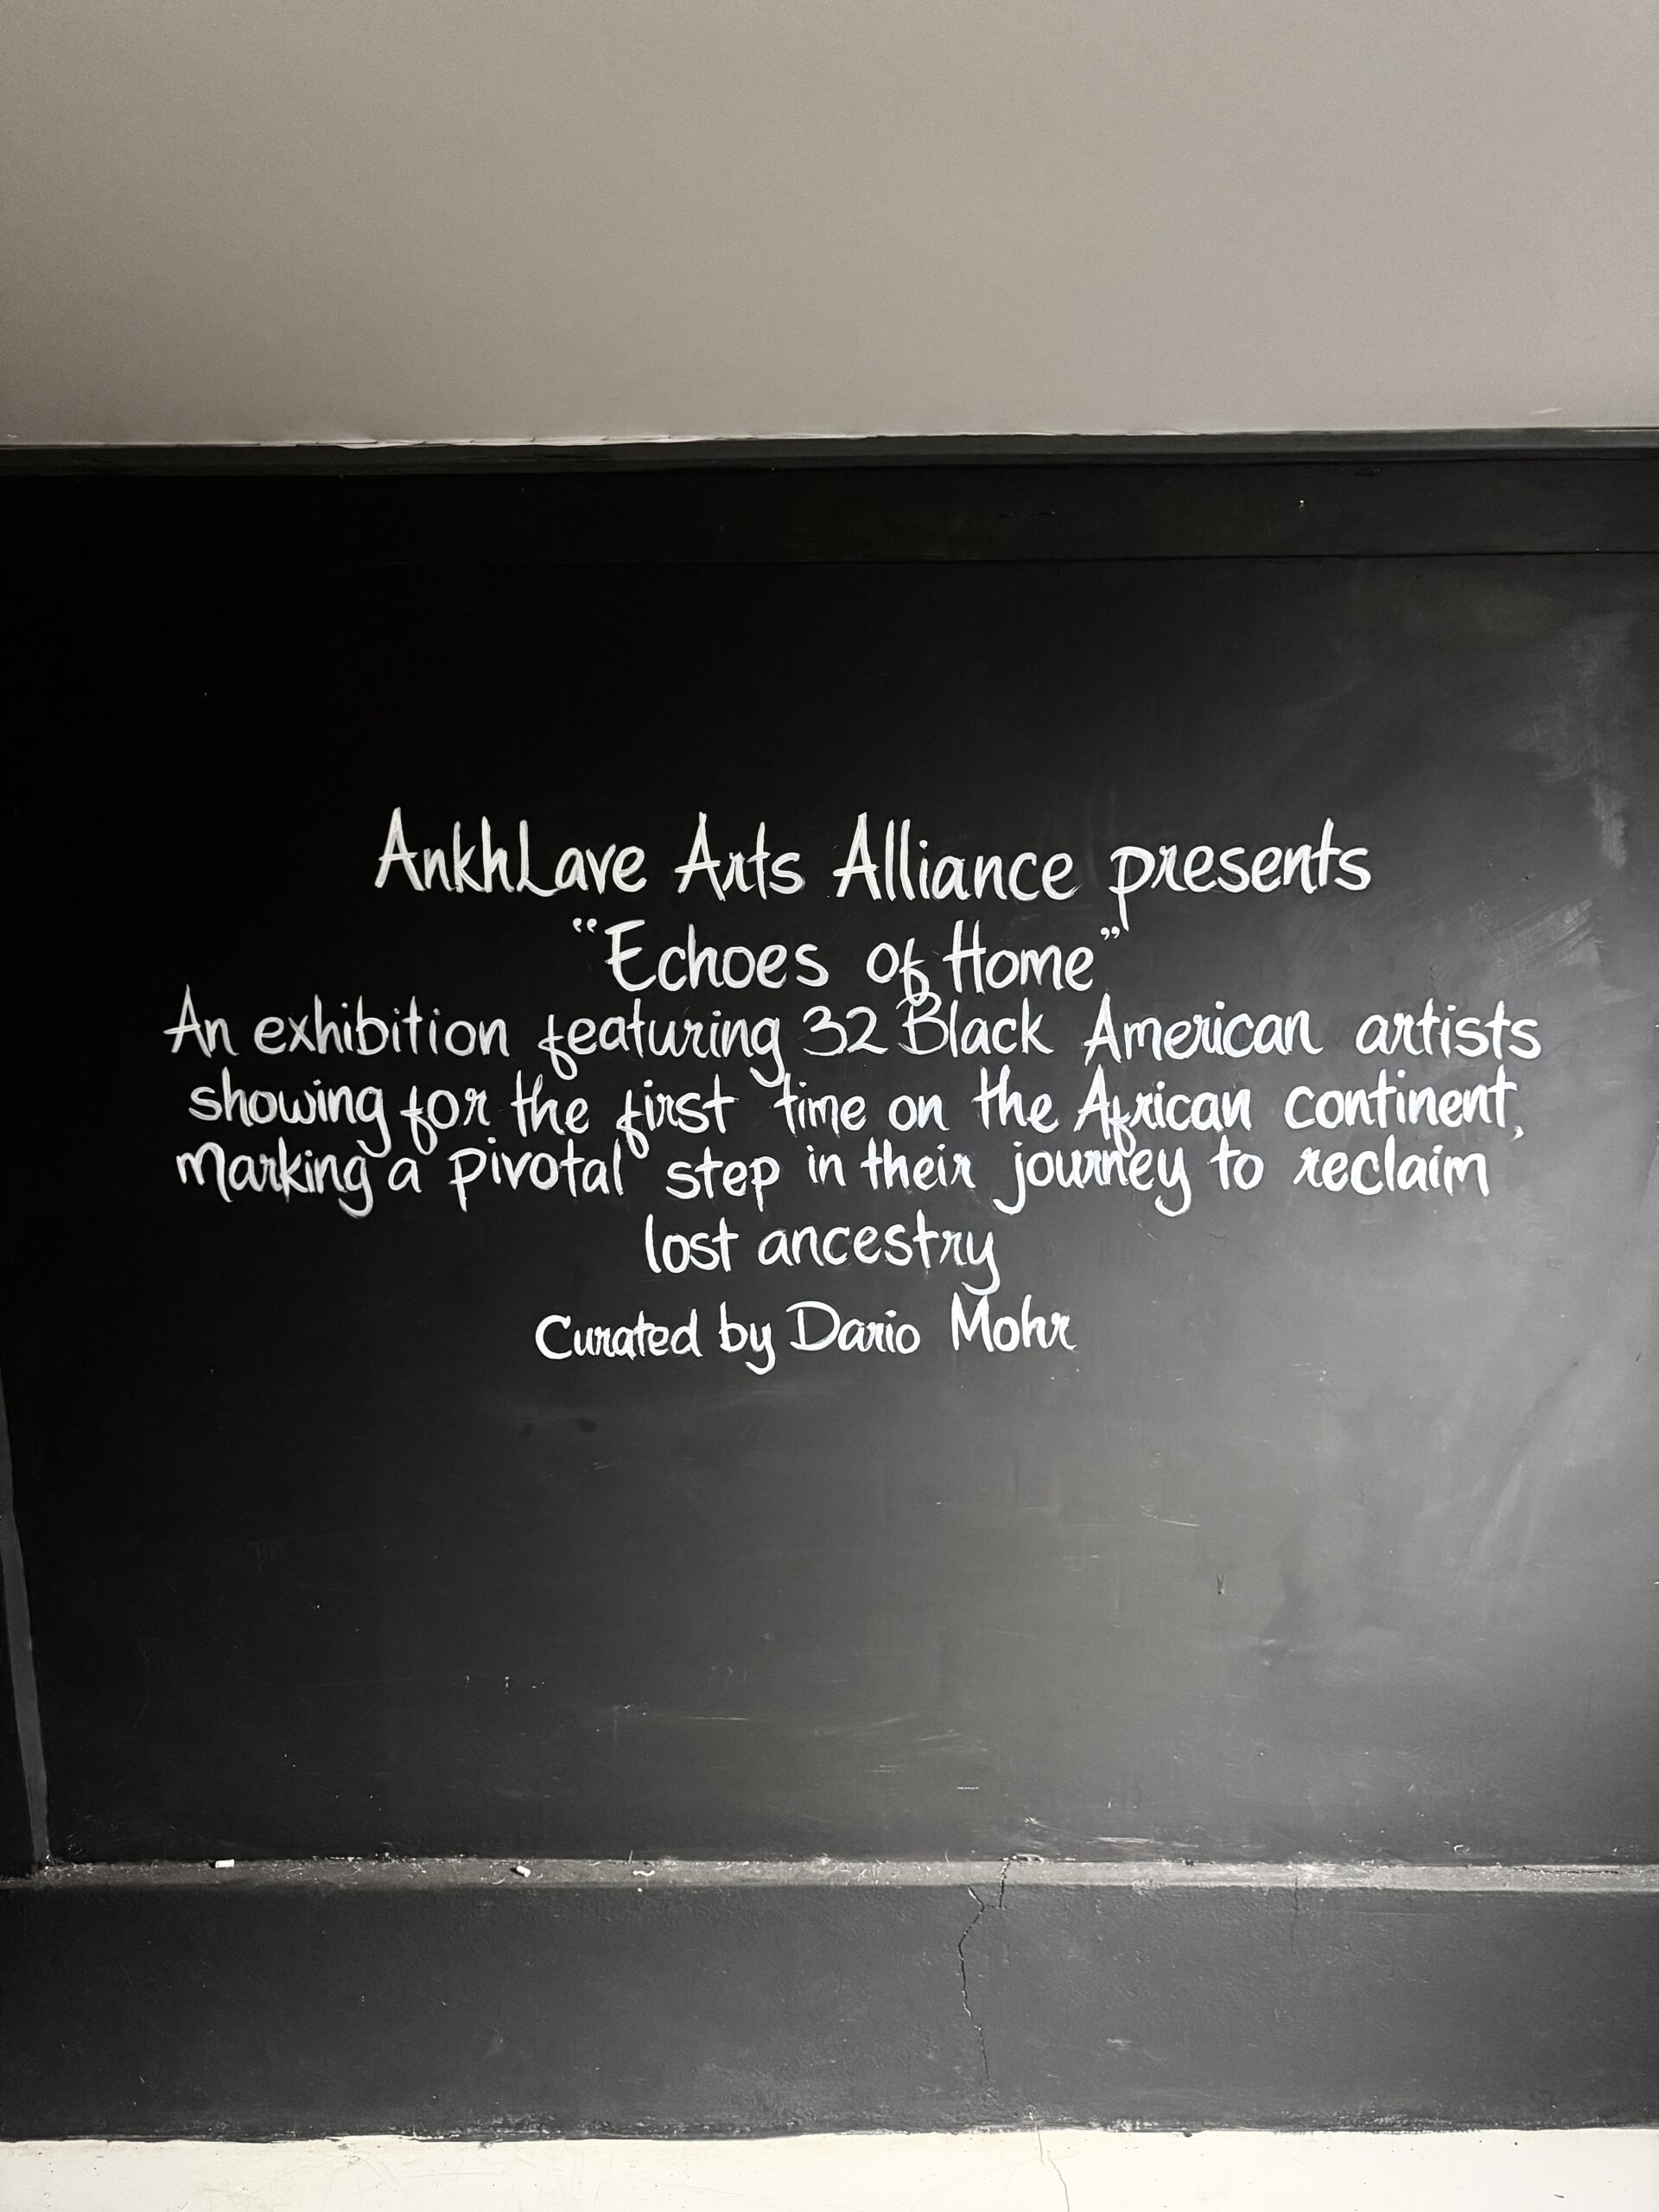 AnkhLave Arts Alliance presents
“Echoes of Home”
An exhibition featuring 32 Black American artists
showing for the first time on the African continent,
marking a pivotal step in their journey to reclaim
lost ancestry
Curated by Dario Mohr